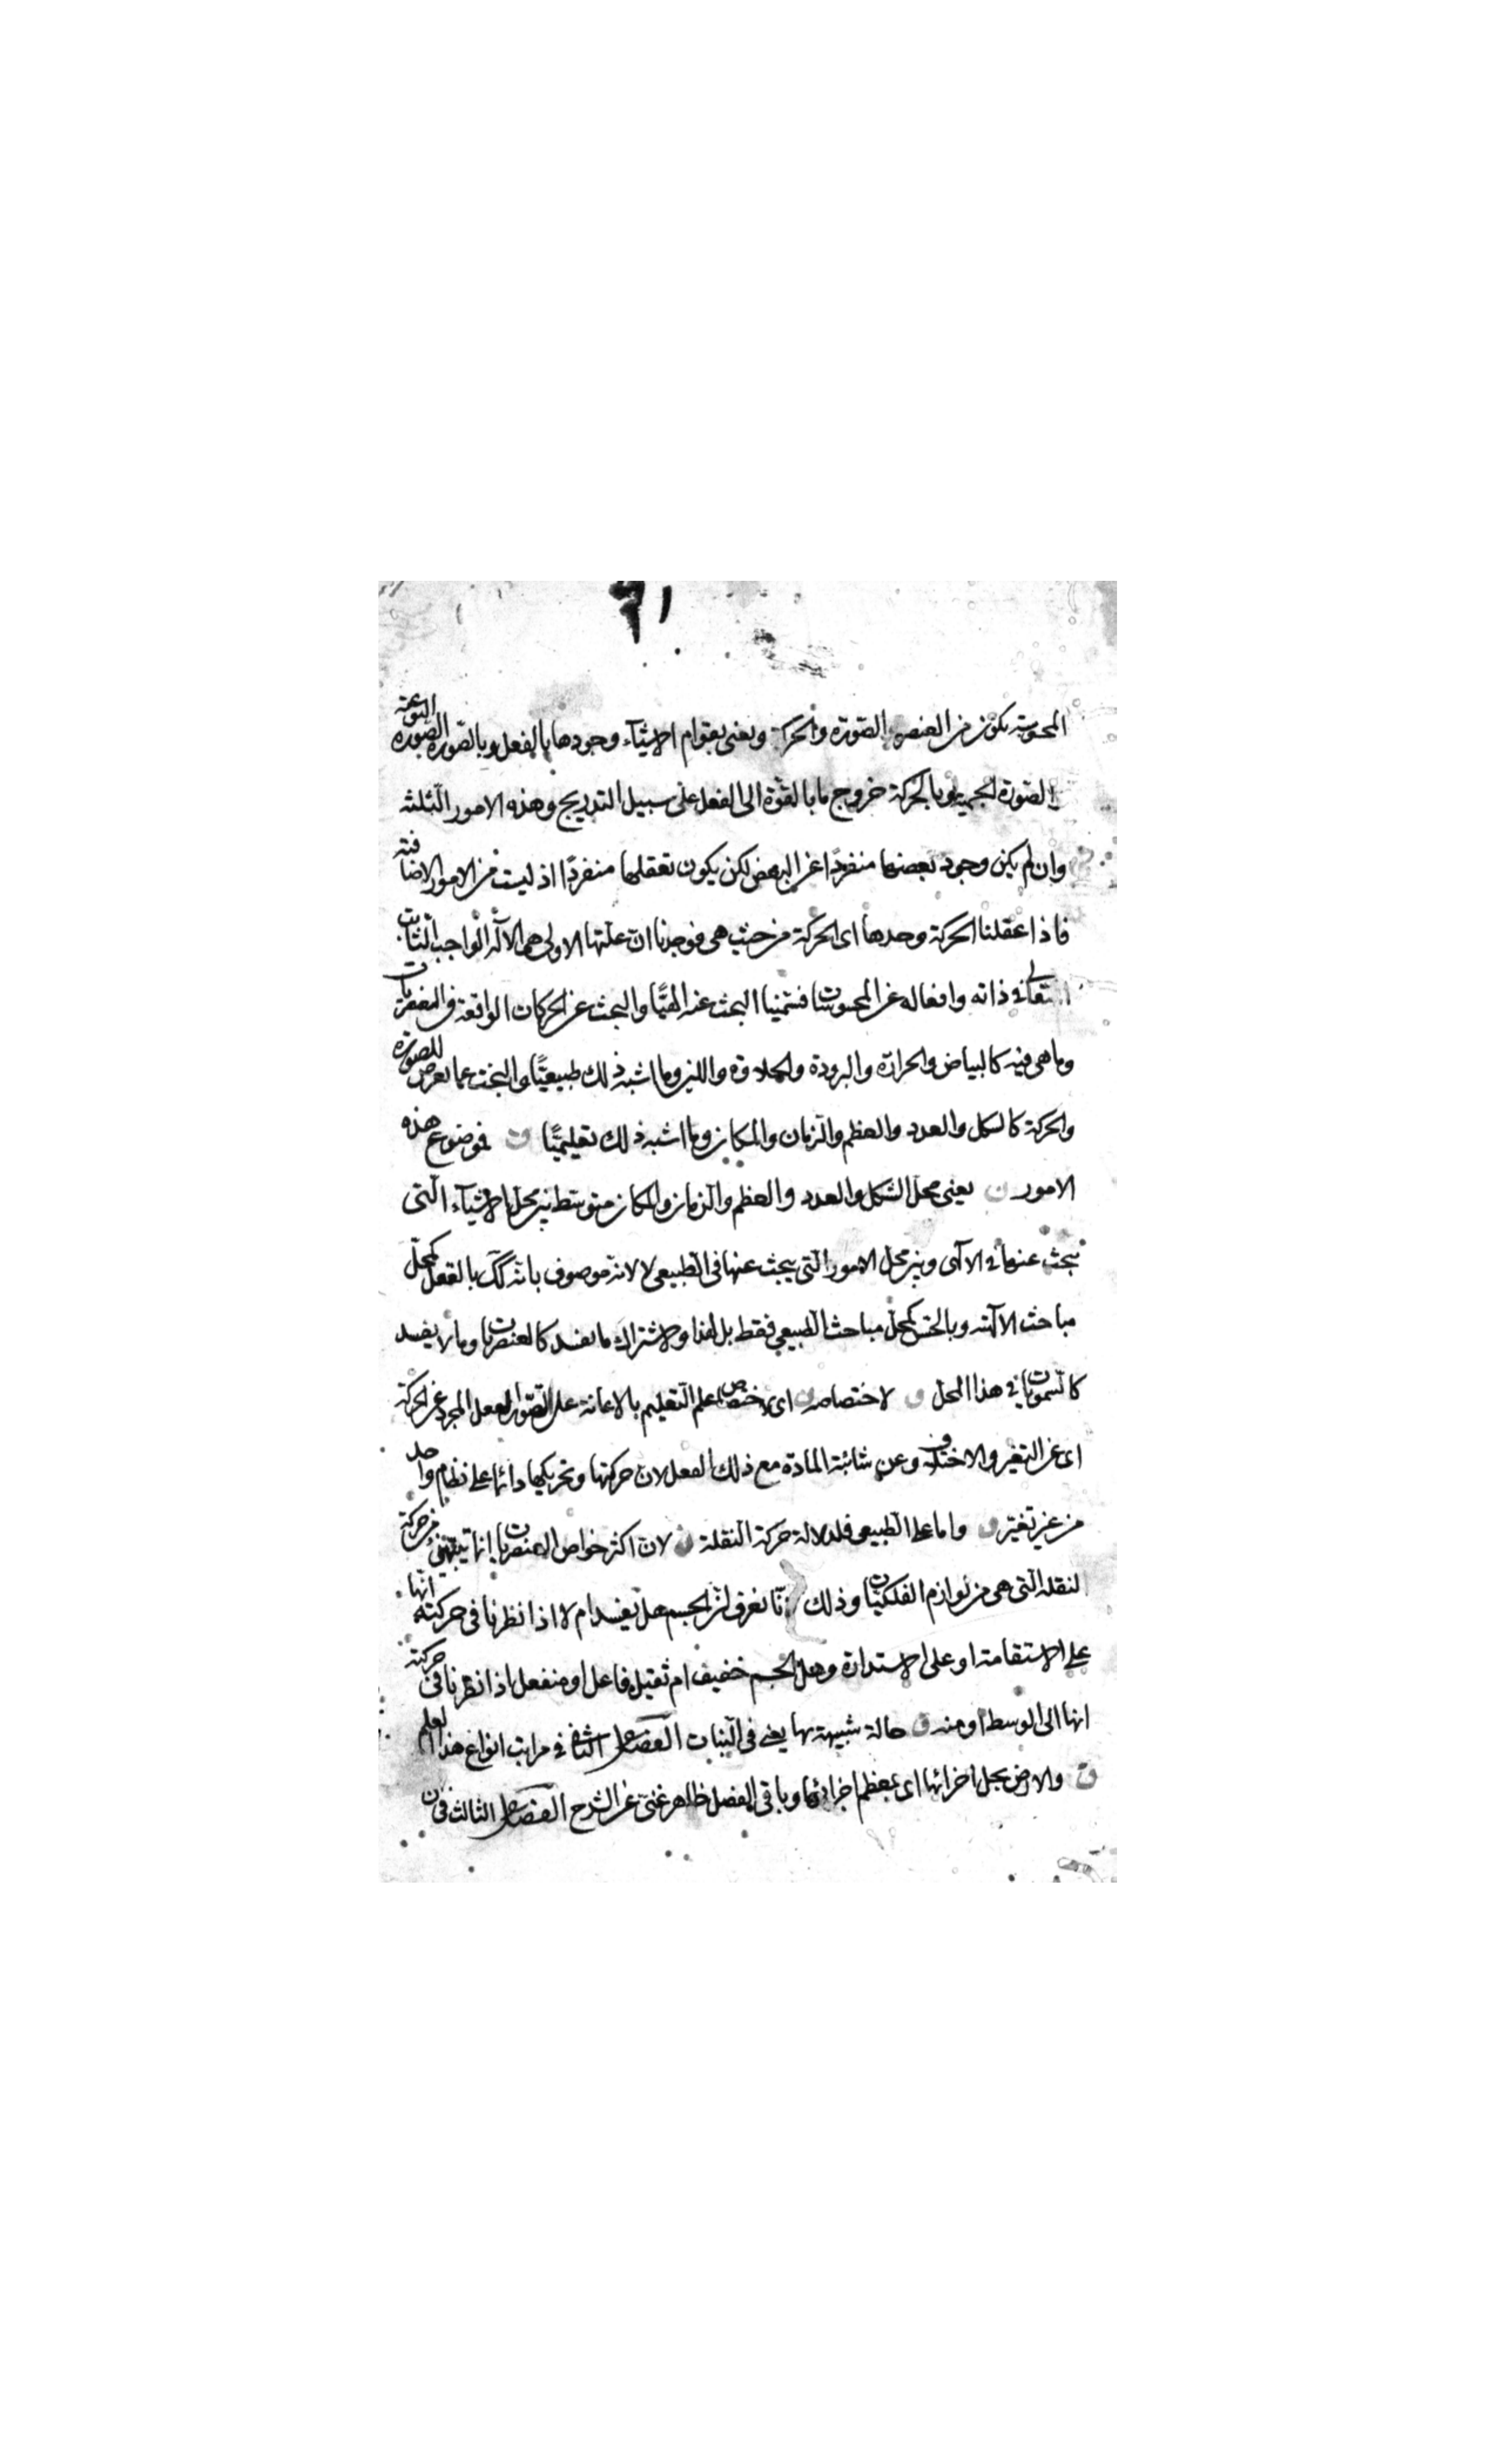 المحسوسة يكون من العنصر والصورة والحركة ونعنى بقوام الاشيآء وجودها بالفعل وبالصورة الصورة النوعية
الصورة الجسمية وبالحركة خروج ما بالقوّة الى الفعل على سبيل التدريج وهذه الامور الثلثة
وان لم يكن وجود بعضها منفردًا عن البعض لكن يكون تعقلها منفردًا اذ ليست من الامور الاضافية
فاذا عقلنا الحركة وحدها اى الحركة من حيث هى فوجدنا انّ علتها الاولى هى الاله الواجب الثابت
تعالى فى ذاته وافعاله عن المحسوسات فسمّينا البحث عنه الهيًّا والبحث عن الحركات الواقعة فى
وما هى فيه كالبياض والحرارة والبرودة والحلاوة واللين وما اشبه ذلك طبيعيًّا والبحث عما يعرض للصورة
والحركة كالشكل والعدد والعظم والزمان والمكان وما اشبه ذلك تعليميًّا ق فموضوع هذه
الامور ن يعنى محلّ الشكل والعدد والعظم والزمان والمكان متوسط بين محلّ الاشيآء التى
يبحث عنها فى الالهى وبين محل الامور التى يبحث عنها فى الطبيعى لا لانه موصوف بانه بالفعل كمحلّ
مباحث الالهية وبالحسّ كمحلّ مباحث الطبيعى فقط بل لهذا ولاشتراك ما يفسد كالعنصريات وما لا يفسد
كالسمويات فى هذا المحلّ ق لاختصاصه ن اى لاختصاص علم التعليم بالاعانة على تصور الفعل المجرد عن الحركة
اى عن التغير والاختلاف وعن شائبة المادّة مع ذلك الفعل لان حركتها وتحريكها دائما على نظام واحد
من غير تغيّر ق واما على الطبيعى فلدلالة حركة النقلة ن لان اكثر خواص العنصريات انما تبتنى من حركة
النقلة التى هى من لوازم الفلكيّات وذلك انّا نعرف انّ الجسم هل يفسد ام لا اذا نظرنا فى حركته انّها
على الاستقامة او على الاستدارة وهل الجسم خفيف ام ثقيل فاعل او منفعل اذا نظرنا فى حركته
انها الى الوسط او منه ق حالة شبيهة بها يعنى فى الثبات الفصل الثانى فى مراتب انواع هذا العلم
ق والارض بجل اجزائها اى بعظم اجزائها وباقى الفصل ظاهر غنىّ عن الشرح الفصل الثالث فى ان